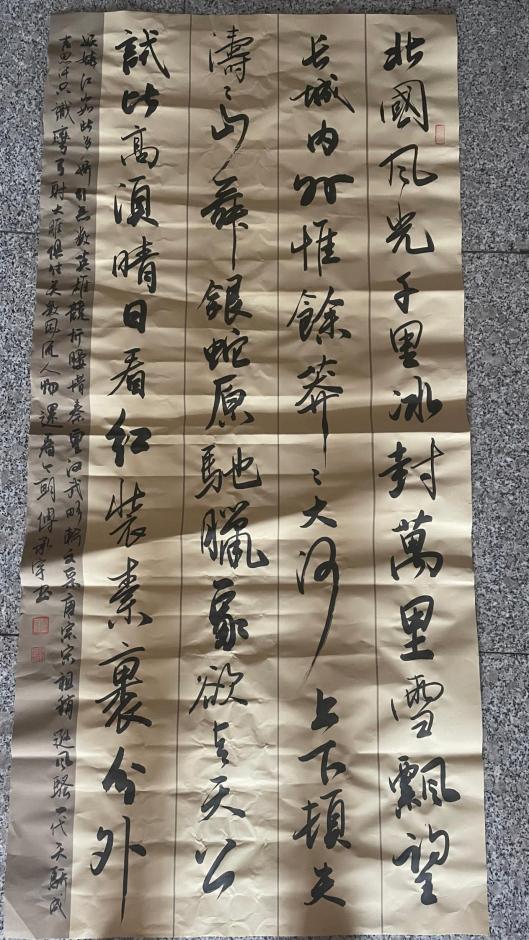 北國风光千里冰封萬里雪飄望
长城内外惟餘莽〻大河上下頓失
濤〻山舞銀蛇原馳臘象欲与天公
試比高須晴日看红裝素裹分外
妖嬈江山如此多娇引无数英雄競折腰惜秦皇汉武略输文采唐宗宋祖稍遜风騷一代天骄成
吉思汗只識彎弓射大雕俱往矣数风流人物還看今朝傅承